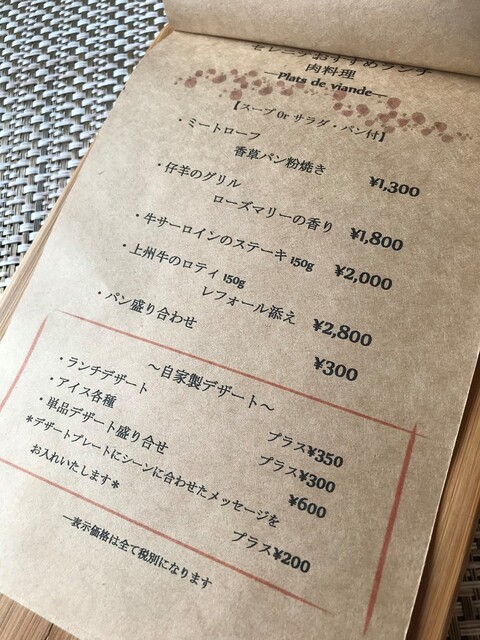 セレニテおすすめランチ
肉料理
―Plats de viande―
【スープ Or サラダ・パン付】
・ミートローフ
香草パン粉焼き ¥1,300
・仔羊のグリル
ローズマリーの香り ¥1,800
・牛サーロインのステーキ 150g ¥2,000
・上州牛のロティ 150g
レフォール添え ¥2,800
・パン盛り合わせ ¥300
～自家製デザート～
・ランチデザート プラス¥350
・アイス各種 プラス¥300
・単品デザート盛り合せ ¥600
*デザートプレートにシーンに合わせたメッセージを
お入れいたします* プラス¥200
―表示価格は全て税別になります